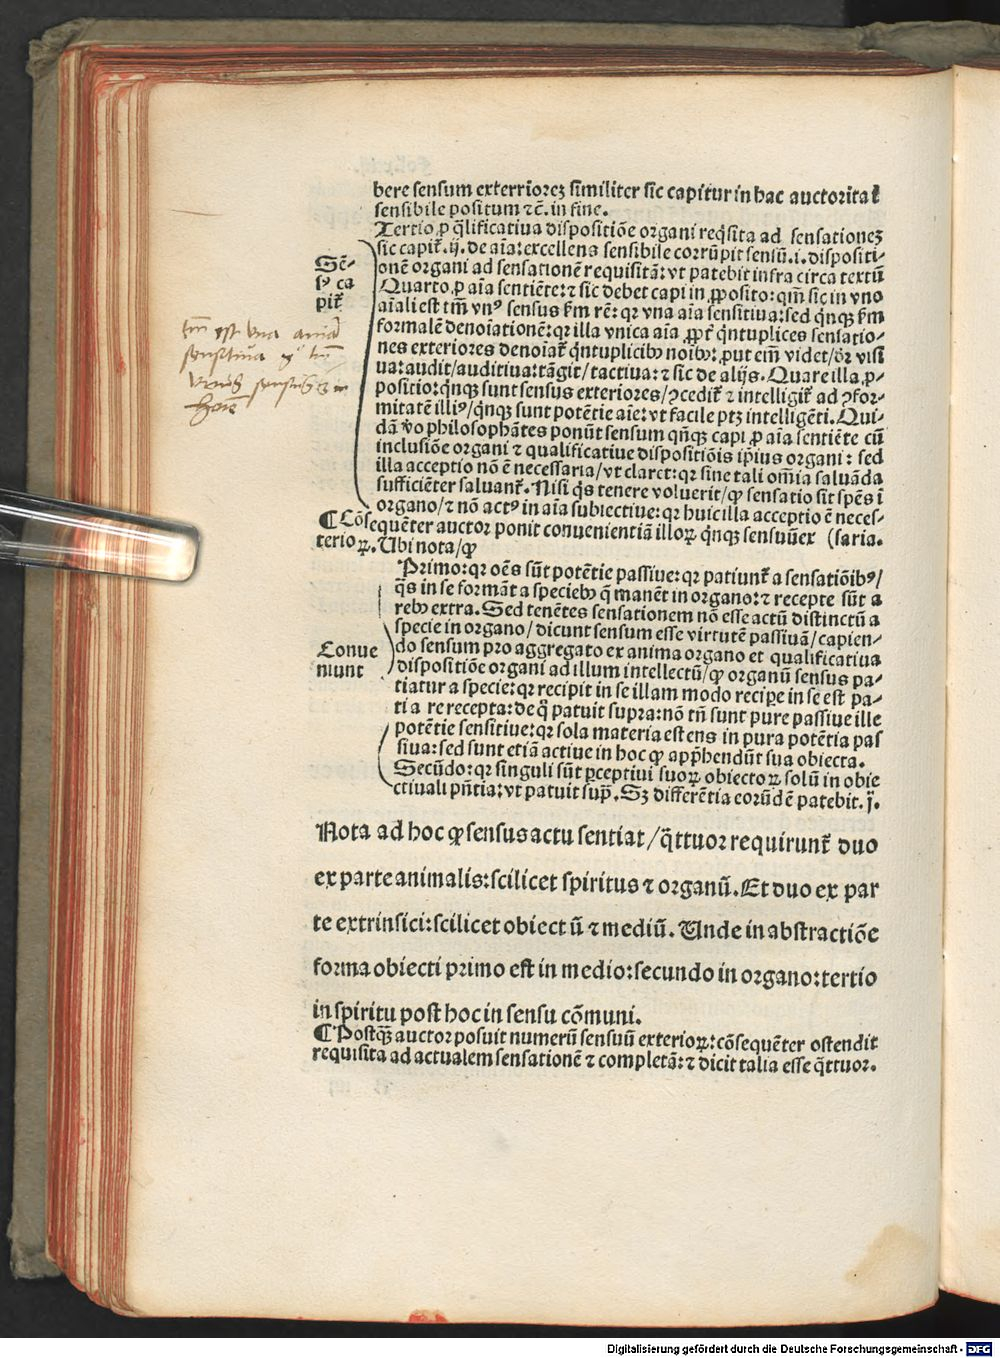 bere sensum exterriorez similiter sic capitur in hac auctoritat̃
sensibile positum ⁊c̃. in fine.
Tertio ꝓ q̃lificatiua dispositiõe organi req̃sita ad sensationeꝫ
sic capit̃. ij. de aĩa: excellens sensibile corrũpit sensũ .i. dispositi-
onẽ organi ad sensationẽ requisitã: vt patebit infra circa textũ
Sẽ-
sꝰ ca
pit̃
Quarto ꝓ aĩa sentiẽte: ⁊ sic debet capi in ꝓposito: qm̃ sic in vno
aĩali est tm̃ vnꝰ sensus ẜm rẽ: qꝛ vna aĩa sensitiua: sed q̃nqꝫ ẜm
formalẽ denoĩationẽ: qꝛ illa vnica aĩa ꝓpt̃ q̃ntuplices sensatio-
nes exteriores denoĩat̃ q̃ntuplicibꝰ noĩbꝰ: ꝓut em̃ videt/ dr̃ visi
ua: audit/ auditiua: tãgit/ tactiua: ⁊ sic de alijs. Quare illa ꝓ-
positio: q̃nqꝫ sunt sensus exteriores/ ꝯcedit̃ ⁊ intelligit̃ ad ꝯfor-
mitatẽ illiꝰ/ q̃nqꝫ sunt potẽtie aĩe: vt facile ptꝫ intelligẽti. Qui-
dã ṽo philosophãtes ponũt sensum qñqꝫ capi ꝓ aĩa sentiẽte cũ
inclusiõe organi ⁊ qualificatiue dispositiõis ip̃ius organi: sed
illa acceptio nõ ẽ necessaria/ vt claret: qꝛ sine tali om̃ia saluãda
sufficiẽter saluant̃. Nisi q̃s tenere voluerit/ ꝙ sensatio sit spẽs ĩ
organo/ ⁊ nõ actꝰ in aĩa subiectiue: qꝛ huic illa acceptio ẽ neces-
tm̃ est una anima
sensitiua
¶ Cõsequẽter auctor ponit conuenientiã illoꝝ q̃nqꝫ sensuũ ex (saria.
terioꝝ. Ubi nota/ ꝙ
Primo: qꝛ oẽs sũt potẽtie passiue: qꝛ patiunt̃ a sensatiõibꝰ/
q̃s in se formãt a speciebꝰ q̃ manẽt in organo: ⁊ recepte sũt a
rebꝰ extra. Sed tenẽtes sensationem nõ esse actũ distinctũ a
specie in organo/ dicunt sensum esse virtutẽ passiuã/ capien-
do sensum pro aggregato ex anima organo et qualificatiua
dispositiõe organi ad illum intellectũ/ ꝙ organũ sensus pa-
Conue
niunt
tiatur a specie: qꝛ recipit in se illam modo recipe in se est pa-
ti a re recepta: de q̃ patuit supra: nõ tñ sunt pure passiue ille
potẽtie sensitiue: qꝛ sola materia est ens in pura potẽtia pas
siua: sed sunt etiã actiue in hoc ꝙ app̃hendũt sua obiecta.
Secũdo: qꝛ singuli sũt ꝑceptiui suoꝝ obiectoꝝ solũ in obie
ctiuali p̃ntia: vt patuit sup̃. Sꝫ differẽtia eorũdẽ patebit. j̃.
Nota ad hoc ꝙ sensus actu sentiat/ q̃ttuor requirunt̃ duo
ex parte animalis: scilicet spiritus ⁊ organũ. Et duo ex par
te extrinsici: scilicet obiectũ ⁊ mediũ. Unde in abstractiõe
forma obiecti primo est in medio: secundo in organo: tertio
in spiritu post hoc in sensu cõmuni.
¶ Postqꝫ auctor posuit numerũ sensuũ exterioꝝ: cõsequẽter ostendit
requisita ad actualem sensationẽ ⁊ completã: ⁊ dicit talia esse q̃ttuor.
Digitalisierung gefördert durch die Deutsche Forschungsgemeinschaft - DFG